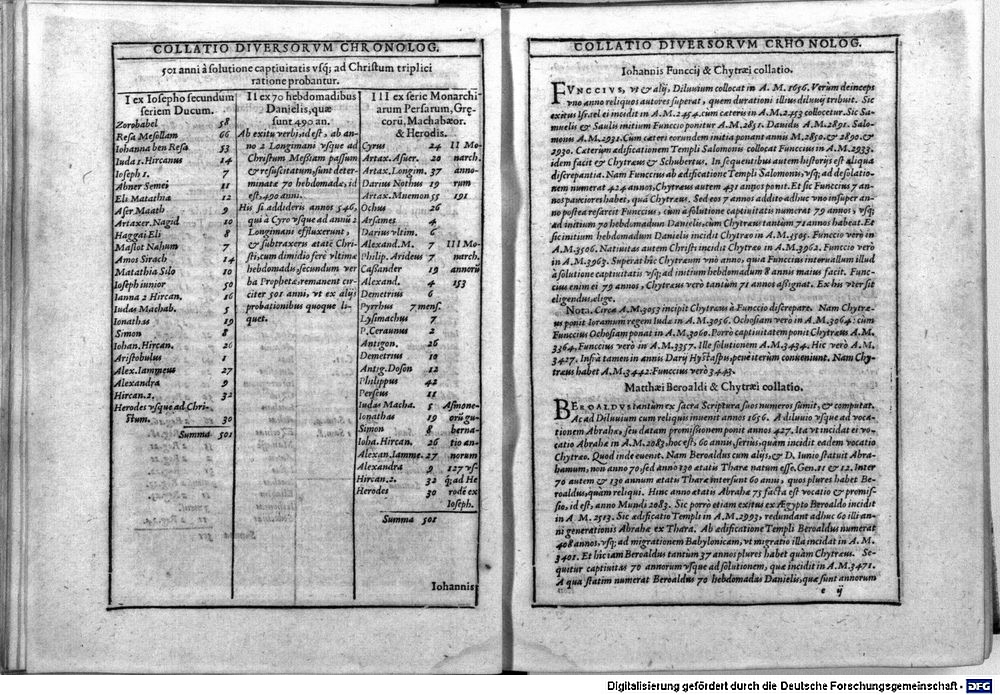 COLLATIO DIVERSORVM CHRONOLOG.
501 anni à solutione captiuitatis vsq; ad Christum triplici
ratione probantur.
I ex Iosepho secundum
seriem Ducum.
Zorobabel 58
Resa Mesollam 66
Iohanna ben Resa 53
Iuda 1. Hircanus 14
Ioseph 1. 7
Abner Semei 11
Eli Matathia 12
Aser Maath 9
Artaxer. Nagid 10
Haggai Eli 8
Maslot Nahum 7
Amos Sirach 14
Matathia Silo 10
Ioseph iunior 50
Ianna 2 Hircan. 16
Iudas Machab. 5
Ionathas 19
Simon 8
Iohan. Hircan. 26
Aristobulus 1
Alex. Iammeus 27
Alexandra 9
Hircan. 2. 32
Herodes vsque ad Chri-
stum. 30
Summa 501
II ex 70 hebdomadibus
Danielis, quæ
sunt 490 an.
Ab exitu verbi, id est, ab an-
no 2 Longimani vsque ad
Christum Messiam passum
& resuscitatum, sunt deter-
minatæ 70 hebdomadæ, id
est, 490 anni.
His si addideris annos 546,
qui à Cyro vsque ad annū 2
Longimani effluxerunt,
& subtraxeris ætatē Chri-
sti, cum dimidio ferè vltimæ
hebdomadis, secundum ver
ba Prophetæ, remanent cir-
citer 501 anni, vt ex alijs
probationibus quoque li-
quet.
III ex serie Monarchi-
arum Persarum, Græ-
corū, Machabæor.
& Herodis.
Cyrus 24 II Mo-
Artax. Asuer. 20 narch.
Artax. Longim. 37 anno-
Darius Nothus 19 rum
Artax. Mnemon 55 191
Ochus 26
Arsames 4
Darius vltim. 6
Alexand. M. 7 III Mo-
Philip. Arideus 7 narch.
Cassander 19 annorū
Alexand. 4 153
Demetrius 6
Pyrrhus 7 mens.
Lysimachus 7
P. Ceraunus 2
Antigon. 26
Demetrius 10
Antig. Doson 12
Philippus 42
Perseus 11
Iudas Macha. 5 Asmone-
Ionathas 19 orū gu-
Simon 8 berna-
Ioha. Hircan. 26 tio an-
Alexan. Iamme. 27 norum
Alexandra 9 127 vs-
Hircan. 2. 32 q; ad He
Herodes 30 rodē ex
Ioseph.
Summa 501
Iohannis
COLLATIO DIVERSORVM CRHONOLOG.
Iohannis Funccij & Chytræi collatio.
FVNCCIVS, vt & alij, Diluuium collocat in A. M. 1656. Verùm deinceps
vno anno reliquos autores superat, quem durationi illius diluuij tribuit. Sic
exitus Israel ei incidit in A.M. 2454. cum cæteris in A.M. 2453 collocetur. Sic Sa-
muelis & Saulis initium Funccio ponitur A.M. 2851. Dauidis A.M. 2891. Salo-
monis A.M. 2931. Cùm cæteri eorundem initia ponant annis M. 2850. & 2890. &
2930. Cæterùm ædificationem Templi Salomonis collocat Funccius in A.M. 2933.
idem facit & Chytræus & Schubertus. In sequentibus autem historijs est aliqua
discrepantia. Nam Funccius ab ædificatione Templi Salomonis, vsq; ad desolatio-
nem numerat 424 annos, Chytræus autem 431 annos ponit. Et sic Funccius 7 an-
nos pauciores habet, quā Chytræus. Sed eos 7 annos addito adhuc vno insuper an-
no postea resarcit Funccius, cùm à solutione captiuitatis numerat 79 annos, vsq;
ad initium 70 hebdomadum Danielis, cùm Chytræus tantùm 71 annos habeat. Et
sic initium hebdomadum Danielis incidit Chytræo in A.M. 3505. Funccio verò in
A.M. 3506. Natiuitas autem Christi incidit Chytræo in A.M. 3962. Funccio verò
in A.M. 3963. Superat hîc Chytræum vno anno, quia Funccius interuallum illud
à solutione captiuitatis vsq; ad initium hebdomadum 8 annis maius facit. Func-
cius enim ei 79 annos, Chytræus verò tantùm 71 annos assignat. Ex his vter sit
eligendus, elige.
Nota. Circa A.M. 3053 incipit Chytræus à Funccio discrepare. Nam Chytræ-
us ponit Ioramum regem Iuda in A.M. 3056. Ochosiam verò in A.M. 3064: cùm
Funccius Ochosiam ponat in A.M. 3060. Porrò captiuitatem ponit Chytræus A.M.
3364, Funccius verò in A.M. 3357. Ille solutionem A.M. 3434. Hic verò A.M.
3427. Infrà tamen in annis Darij Hystaspis, penè iterùm conueniunt. Nam Chy-
træus habet A.M. 3442: Funccius verò 3443.
Matthæi Beroaldi & Chytræi collatio.
BEROALDVS tantum ex sacra Scriptura suos numeros sumit, & computat.
Ac ad Diluuium cum reliquis inuenit annos 1656. A diluuio vsque ad voca-
tionem Abrahæ, seu datam promissionem ponit annos 427. Ita vt incidat ei vo-
catio Abrahæ in A.M. 2083, hoc est, 60 annis, seriùs, quàm incidit eadem vocatio
Chytræo. Quod inde euenit. Nam Beroaldus cum alijs, & D. Iunio statuit Abra-
hamum, non anno 70, sed anno 130 ætatis Tharæ natum esse. Gen. 11 & 12. Inter
70 autem & 130 annum ætatis Tharæ intersunt 60 anni, quos plures habet Be-
roaldus, quàm reliqui. Hinc anno ætatis Abrahæ 75 facta est vocatio & promis-
sio, id est, anno Mundi 2083. Sic porrò etiam exitus ex Ægypto Beroaldo incidit
in A M. 2513. Sic ædificatio Templi in A.M. 2993, redundant adhuc 60 illi an-
ni generationis Abrahæ ex Thara. Ab ædificatione Templi Beroaldus numerat
408 annos, vsq; ad migrationem Babylonicam, vt migratio illa incidat in A. M.
3401. Et hic iam Beroaldus tantùm 37 annos plures habet quàm Chytræus. Se-
quitur captiuitas 70 annorum vsque ad solutionem, quæ incidit in A.M. 3471.
A qua statim numerat Beroaldus 70 hebdomadas Danielis, quæ sunt annorum
e ij
Digitalisierung gefördert durch die Deutsche Forschungsgemeinschaft - DFG